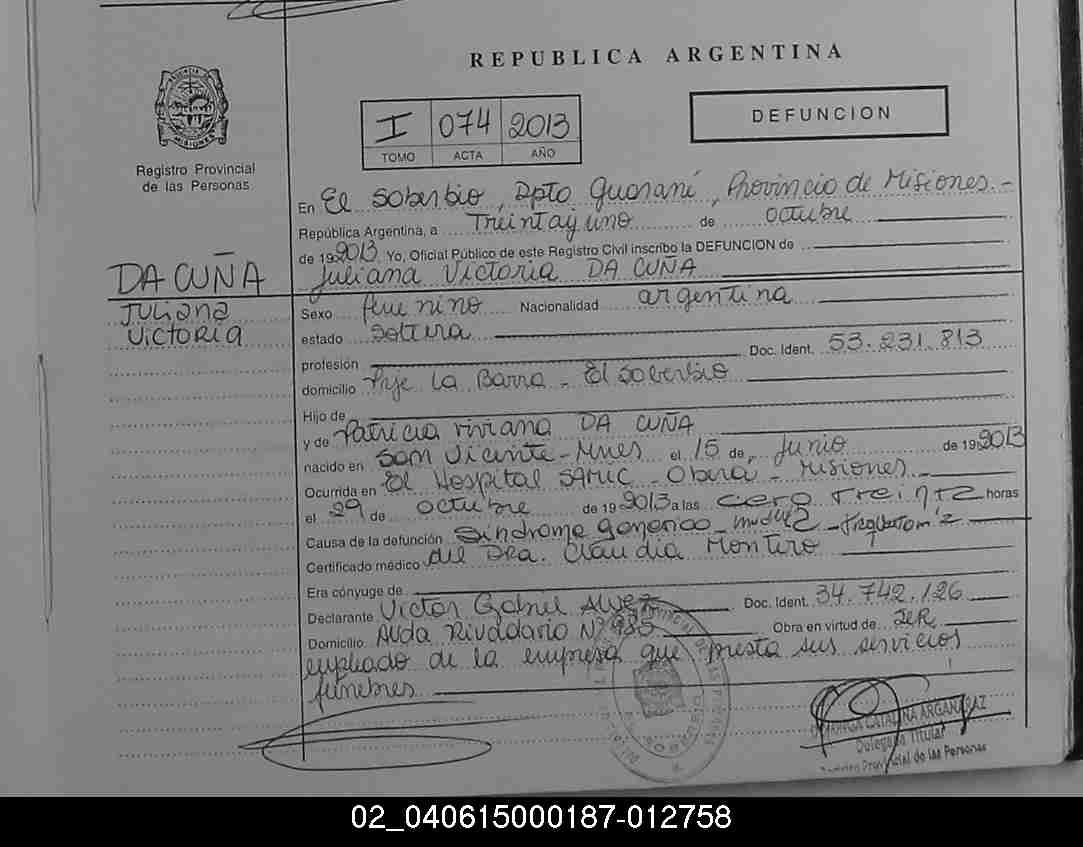 REPUBLICA ARGENTINA
I 074 2013
TOMO ACTA AÑO
DEFUNCION
Registro Provincial
de las Personas
En El Soberbio, Dpto Guaraní, Provincia de Misiones.-
República Argentina, a Treinta y uno de octubre
de 19 2013 Yo, Oficial Público de este Registro Civil inscribo la DEFUNCION de
Juliana Victoria DA CUÑA
DA CUÑA
Juliana
Victoria
Sexo femenino Nacionalidad argentina
estado soltera
profesión Doc. Ident. 53.231.813
domicilio Pje La Barra - El Soberbio
Hijo de
y de Patricia Viviana DA CUÑA
nacido en San Vicente - Mnes el 15 de Junio de 19 2013
Ocurrida en El Hospital SAMIC - Oberá - Misiones -
el 29 de octubre de 19 2013 a las cero treinta horas
Causa de la defunción Sindrome
Certificado médico del Dra. Claudia Montero
Era cónyuge de
Declarante Victor Gabriel Alvez Doc. Ident. 34.742.126
Domicilio Avda Rivadavia Nº 985 Obra en virtud de ser
empleado de la empresa que presta sus servicios
fúnebres
CATALINA ARGAÑARAZ
Delegada Titular
Registro Provincial de las Personas
02_040615000187-012758